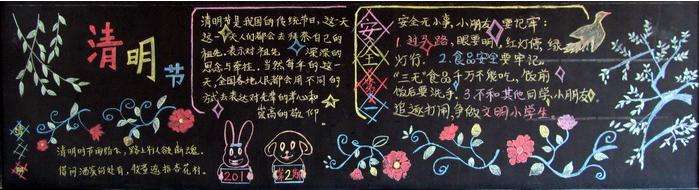 清明节
清明节是我国的传统节日,这一天
这一天人们都会去拜祭自己的
祖先,表示对祖先
思念与牵挂,当然每年的这一
天,全国各地人民都会用不同的
方式去表达对先辈的孝心和
崇高的敬仰
安全无小事,小朋友要记牢:
1.过马路,眼要明,红灯停,绿
灯行.2.食品安全要牢记,
“三无”食品千万不能吃,饭前
饭后要洗手,3.不和其他同学,小朋友
追逐打闹,争做文明小学生。
清明时节雨纷飞,路上行人欲断魂,
借问酒家何处有,牧童遥指杏花村.
201
第2期